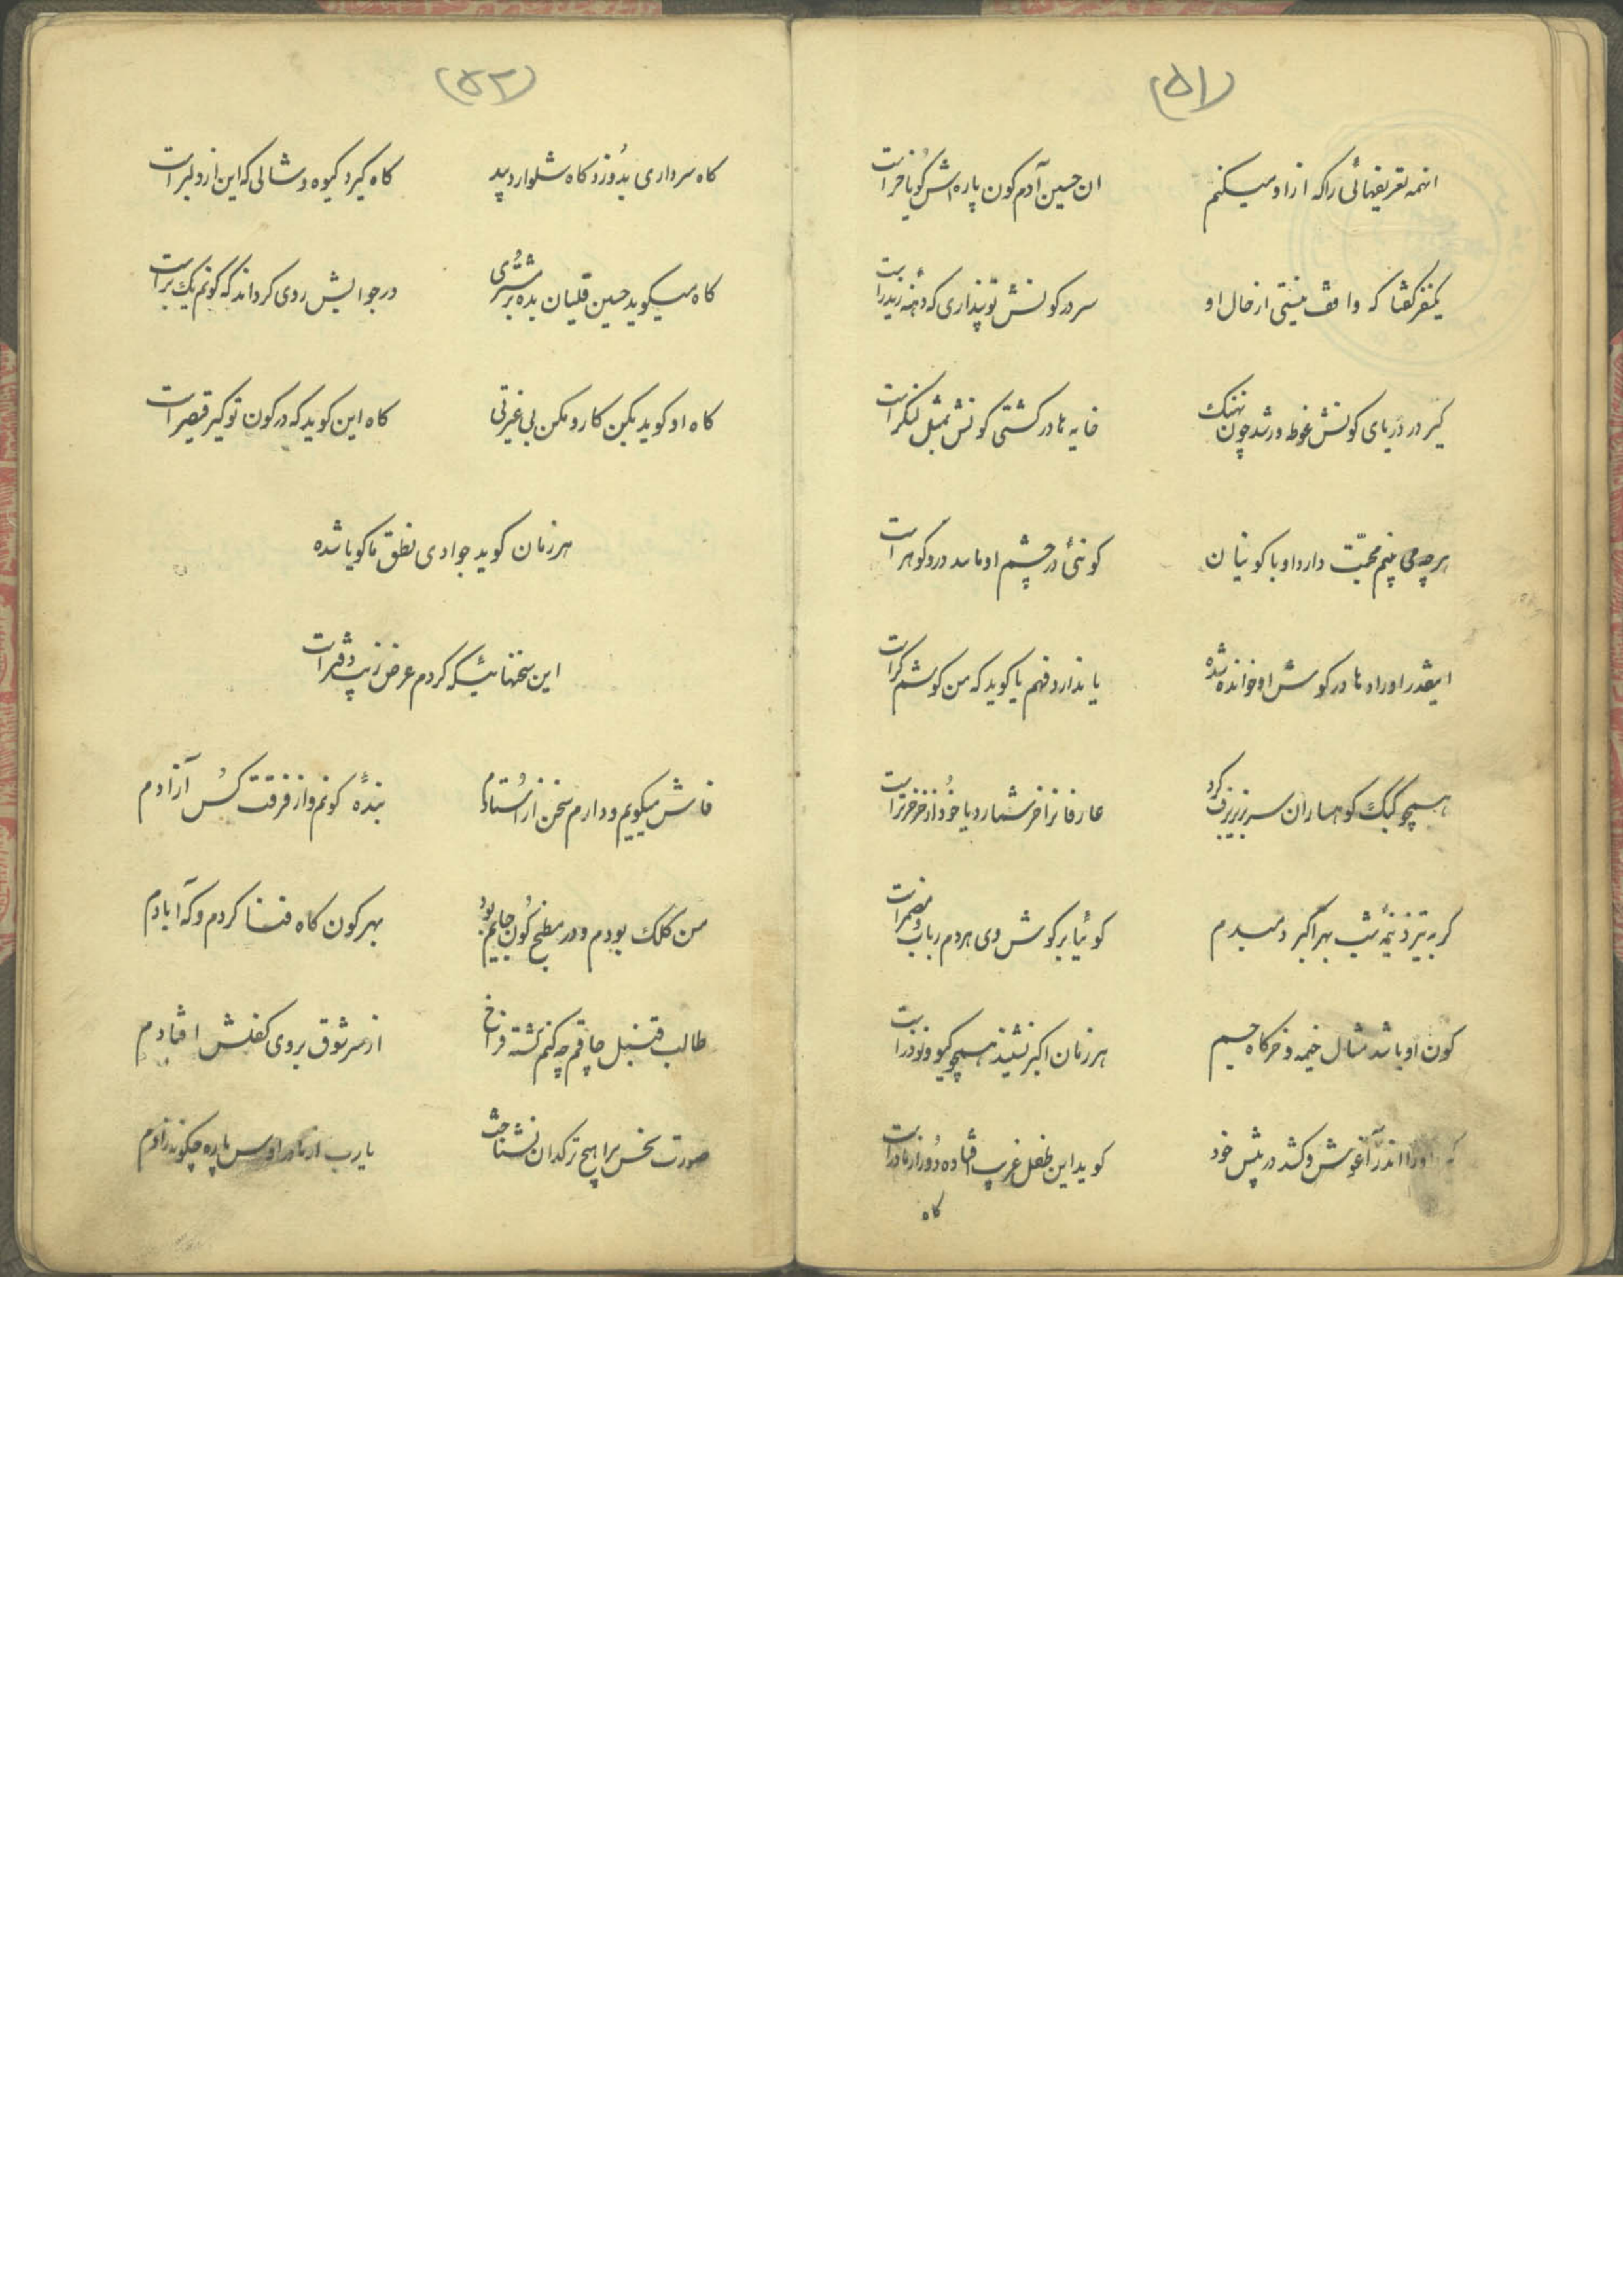 (۵۱)
انهمه تعریفهائی را که از او میکنم ان حسین آدم کون پاره‌اش گویا خراست
یکنفر گفتا که واقف نیستی از حال او سر در کونش تو پنداری که دهنه
کیر در دریای کونش غوطه‌ور شد چون نهنک خایه ها در کشتی کونش بمثل لنگر است
هر چه می بینم محبّت دارد او با کونیان کونئی در چشم او مانند در و گوهر است
اینقدر اورادها در گوش او خوانده شده یا ندارد فهم یا گوید که من گوشم کر است
همچو کبک کوهساران سر بزیر برف کرد عارفانرا خر شمارد یا خود از خر خرتر است
گربه تیزد نیمه شب بهر اکبر دمبدم گوئیا بر گوش وی هردم رباب و مضمر است
کون او باشد مثال خیمه و خرکاه جیم هر زمان اکبر نشیند همچو گیو و نوذر است
اورا اندر آغوش و کشد در پیش خود گوید این طفل غریب افتاده دور از مادر است
گاه
(۵۲)
گاه سرداری بدوزد گاه شلوار دبید گاه گیرد گیوه و شالی که این از دلبر است
گاه میگوید حسین قلیان بده بر مشتری در جوابش روی گرداند که کونم یک بر است
گاه او گوید بکن کار و مکن بی غیرتی گاه این گوید که در کون تو کیر قیصر است
هر زمان گوید جوادی نطق ما گویا شده
این سخنهائیکه کردم عرض زیب دفتر است
فاش میگویم و دارم سخن از استادم بندهٔ کونم و از فرقت کس آزادم
من کلک بودم و در مطبخ کون جایم بود بهر کون گاه فسنا کردم و که آبادم
طالب قنبل چاقم چه کنم گشته فراخ از سر شوق بروی کفلش افتادم
صورت نحس مرا هیچ ترکدان نشناخت یارب از مادر پاره چگونه زادم